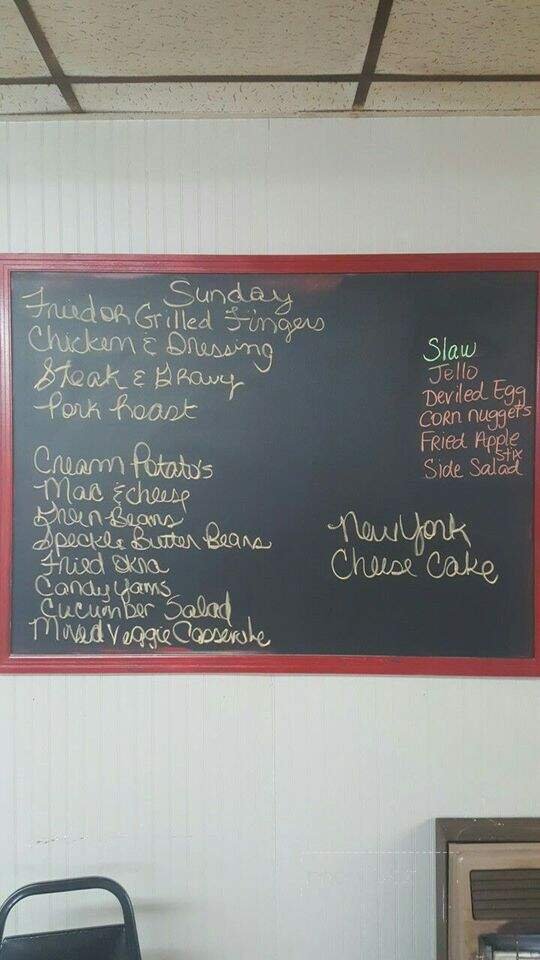 Sunday
Fried or Grilled Fingers
Chicken & Dressing
Steak & Gravy
Pork Roast
Cream Potato's
Mac & cheese
Green Beans
Speckle Butter Beans
Fried Okra
Candy Yams
Cucumber Salad
Mixed Veggie Casserole
Slaw
Jello
Deviled Egg
Corn nuggets
Fried Apple
Stix
Side Salad
New York
Cheese Cake